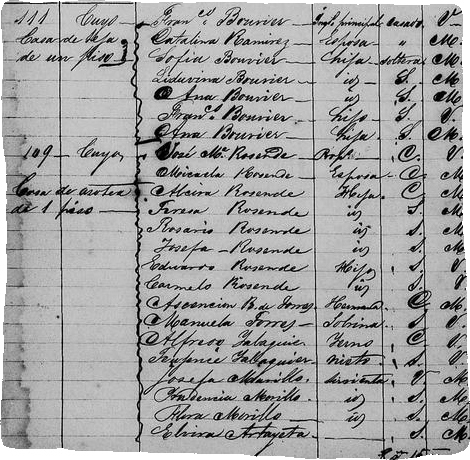 111 Cuyo Franco Bouvier Inqo principal casado V.
Casa de teja Catalina Ramirez Esposa " M.
de un piso Sofia Bouvier hija soltera M.
Liduvina Bouvier id S. M.
Ana Bouvier id S. M.
Franco Bouvier hijo S. V.
Ana Bouvier hija S. M.
109 Cuyo José Ma Rosende C. V.
Micaela Rosende Esposa C. M.
Casa de azotea Alcira Rosende Hija C. M.
de 1 piso Teresa Rosende id S. M.
Rosario Rosende id S. M.
Josefa Rosende id S. M.
Eduardo Rosende Hijo S. V.
Carmelo Rosende id S. V.
Ascencion B. de Torres Hermana C. M.
Manuela Torres Sobrina S. V.
Alfredo Yerno C. V.
nieto S. V.
Josefa Murillo sirvienta V. M.
Prudencia Morillo id S. M.
Flora Morillo id S. M.
Elvira S. M.